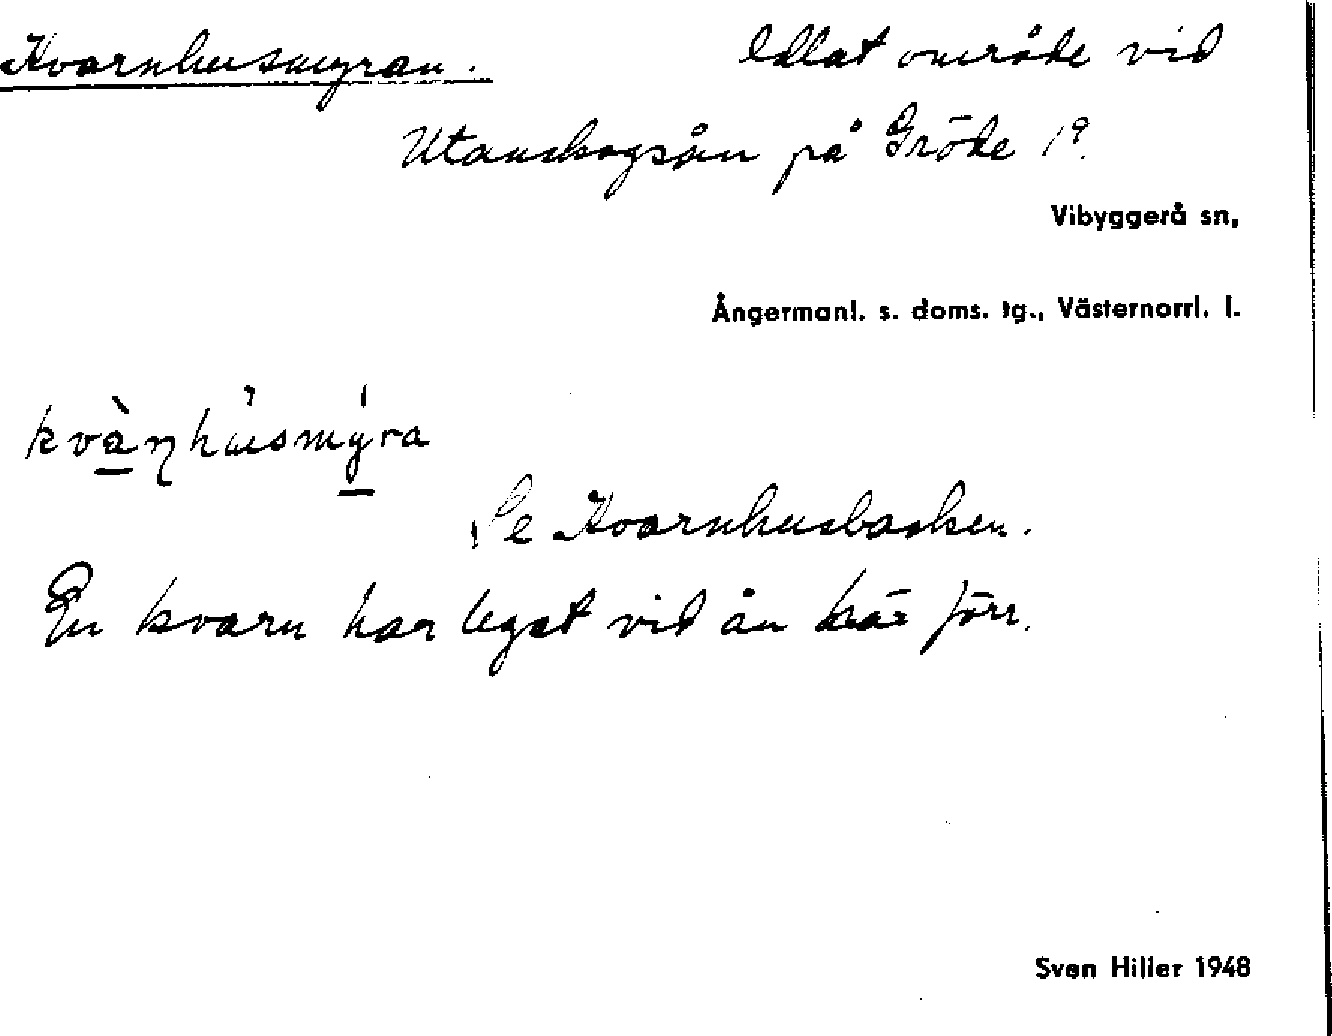 Kvarnhusmyran. Odlat område vid
Utanskogsån på Gröde 1⁹.
Vibyggerå sn,
Ångermanl. s. doms. tg., Västernorrl. l.
kvà̱ɳhúsmý̱ra
Se Kvarnhusbacken.
En kvarn har legat vid ån här förr.
Sven Hiller 1948